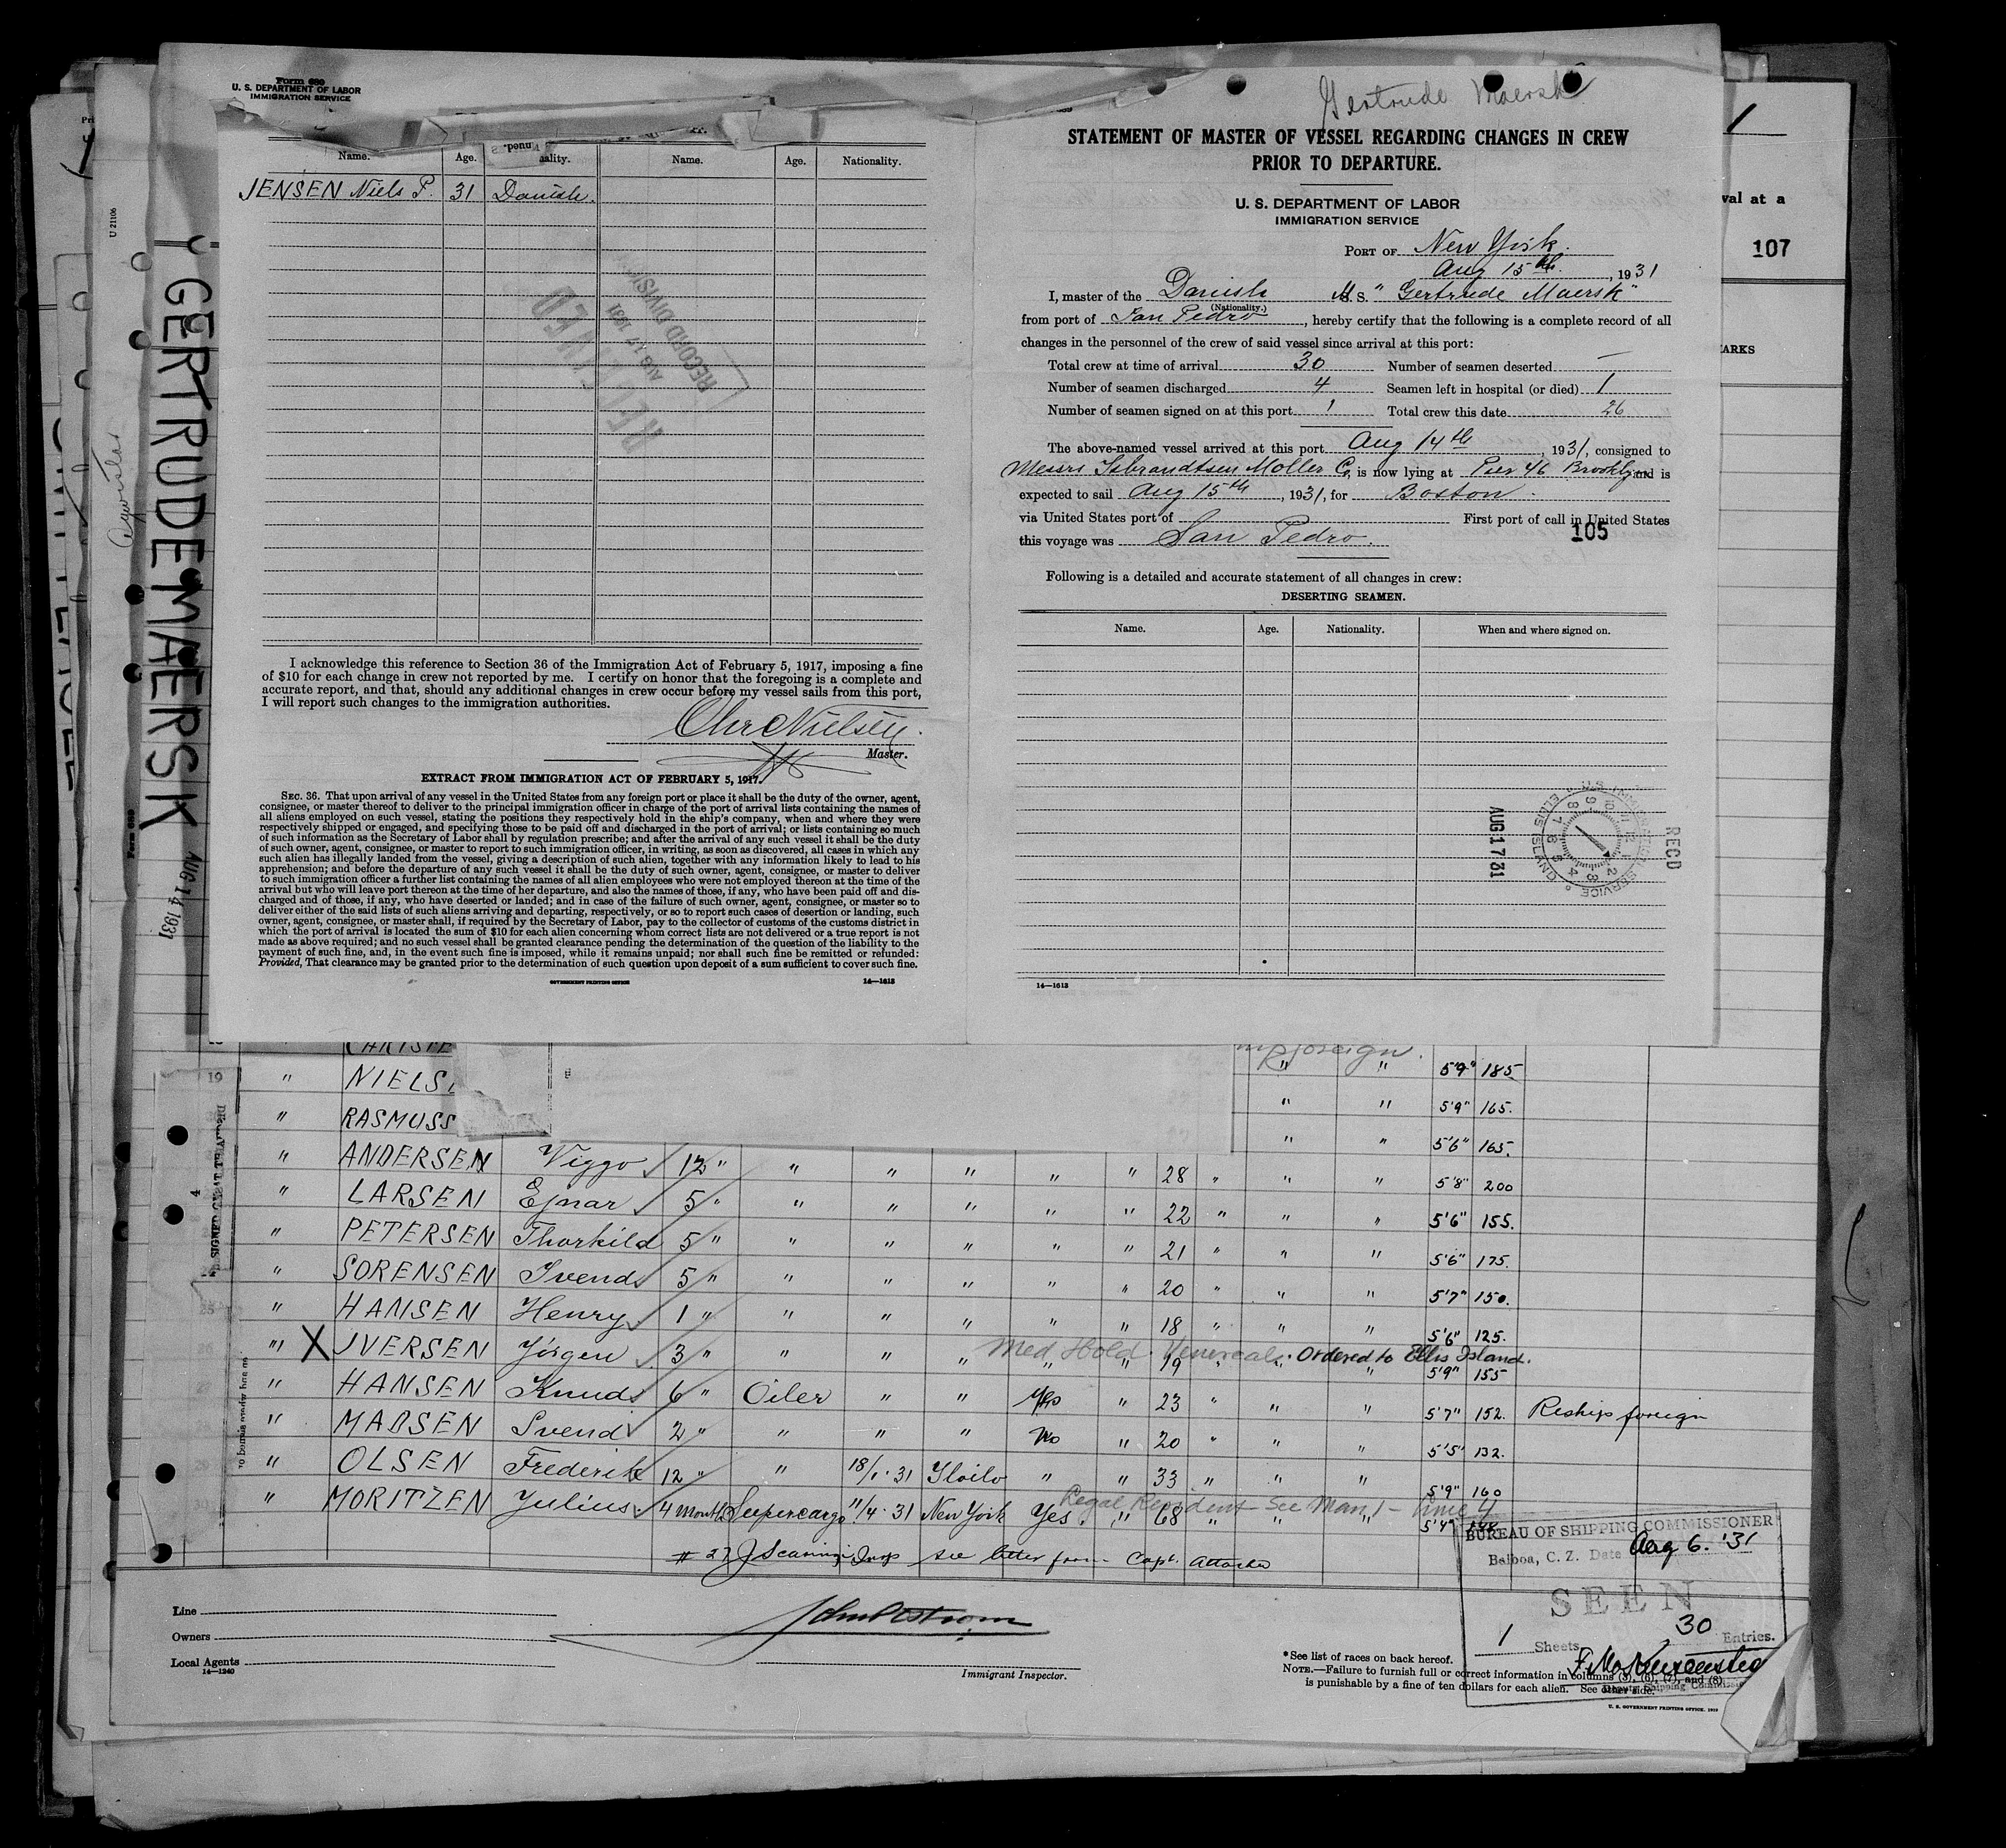 Form 689
U. S. DEPARTMENT OF LABOR
IMMIGRATION SERVICE
Name. Age. ality. Name. Age. Nationality.
JENSEN Niels P. 31 Danish.
RECEIVED
AUG 17 1931
RECORD DIVISION
I acknowledge this reference to Section 36 of the Immigration Act of February 5, 1917, imposing a fine
of $10 for each change in crew not reported by me. I certify on honor that the foregoing is a complete and
accurate report, and that, should any additional changes in crew occur before my vessel sails from this port,
I will report such changes to the immigration authorities.
Chr Nielsen
Master.
EXTRACT FROM IMMIGRATION ACT OF FEBRUARY 5, 1917.
SEC. 36. That upon arrival of any vessel in the United States from any foreign port or place it shall be the duty of the owner, agent,
consignee, or master thereof to deliver to the principal immigration officer in charge of the port of arrival lists containing the names of
all aliens employed on such vessel, stating the positions they respectively hold in the ship's company, when and where they were
respectively shipped or engaged, and specifying those to be paid off and discharged in the port of arrival; or lists containing so much
of such information as the Secretary of Labor shall by regulation prescribe; and after the arrival of any such vessel it shall be the duty
of such owner, agent, consignee, or master to report to such immigration officer, in writing, as soon as discovered, all cases in which any
such alien has illegally landed from the vessel, giving a description of such alien, together with any information likely to lead to his
apprehension; and before the departure of any such vessel it shall be the duty of such owner, agent, consignee, or master to deliver
to such immigration officer a further list containing the names of all alien employees who were not employed thereon at the time of the
arrival but who will leave port thereon at the time of her departure, and also the names of those, if any, who have been paid off and dis-
charged and of those, if any, who have deserted or landed; and in case of the failure of such owner, agent, consignee, or master so to
deliver either of the said lists of such aliens arriving and departing, respectively, or so to report such cases of desertion or landing, such
owner, agent, consignee, or master shall, if required by the Secretary of Labor, pay to the collector of customs of the customs district in
which the port of arrival is located the sum of $10 for each alien concerning whom correct lists are not delivered or a true report is not
made as above required; and no such vessel shall be granted clearance pending the determination of the question of the liability to the
payment of such fine, and, in the event such fine is imposed, while it remains unpaid; nor shall such fine be remitted or refunded:
Provided, That clearance may be granted prior to the determination of such question upon deposit of a sum sufficient to cover such fine.
GOVERNMENT PRINTING OFFICE 14—1613
Gertrude Maersk
STATEMENT OF MASTER OF VESSEL REGARDING CHANGES IN CREW
PRIOR TO DEPARTURE.
U. S. DEPARTMENT OF LABOR
IMMIGRATION SERVICE
PORT OF New York.
Aug 15th, 1931
I, master of the Danish M. S. "Gertrude Maersk"
(Nationality.)
from port of San Pedro, hereby certify that the following is a complete record of all
changes in the personnel of the crew of said vessel since arrival at this port:
Total crew at time of arrival 30 Number of seamen deserted —
Number of seamen discharged 4 Seamen left in hospital (or died) 1
Number of seamen signed on at this port 1 Total crew this date 26
The above-named vessel arrived at this port Aug 14th, 1931, consigned to
Messrs Isbrandtsen Moller Co, is now lying at Pier 46 Brooklyn and is
expected to sail Aug 15th, 1931, for Boston.
via United States port of First port of call in United States
this voyage was San Pedro.
105
Following is a detailed and accurate statement of all changes in crew:
DESERTING SEAMEN.
Name. Age. Nationality. When and where signed on.
RECD
AUG 17 31
U.S. IMMIGRATION SERVICE ELLIS ISLAND
14—1613
1
val at a
107
ARKS
U 21106
GERTRUDE MAERSK
AUG 14 1931
Form 689
foreign.
19 " NIELS " " 5'9" 185
" RASMUSS " " 5'9" 165.
" " 5'6" 165.
" ANDERSEN Viggo 12 " " " " " " 28 " " " 5'8" 200
" LARSEN Ejnar 5 " " " " " " 22 " " " 5'6" 155.
" PETERSEN Thorkild 5 " " " " " " 21 " " " 5'6" 175.
" SORENSEN Svend 5 " " " " " " 20 " " " 5'7" 150.
" HANSEN Henry 1 " " " " " " 18 " " " 5'6" 125.
Med Hold. Venereal. Ordered to Ellis Island.
" X IVERSEN Jörgen 3 " " " " " " 19 " " " 5'9" 155
" HANSEN Knud 6 " Oiler " " Yes " 23 " " " 5'7" 152. Reship foreign
" MADSEN Svend 2 " " " " No " 20 " " " 5'5" 132.
" OLSEN Frederik 12 " " 18/1-31 Iloilo " " 33 " " " 5'9" 160
Legal Resident See Man 1 - Line 4
" MORITZEN Julius 4 Month Supercargo 11/4-31 New York Yes " 68 " " " 5'4"
# 27 see letter from Capt. attached
Line
Owners
Local Agents
14—1240
Immigrant Inspector.
*See list of races on back hereof.
NOTE.—Failure to furnish full or correct information in columns (3), (6), (7), and (8)
is punishable by a fine of ten dollars for each alien. See other side.
U. S. GOVERNMENT PRINTING OFFICE. 1929
BUREAU OF SHIPPING COMMISSIONER
Balboa, C. Z. Date Aug 6. '31
SEEN
1 Sheets 30 Entries.
Deputy Shipping Commissioner